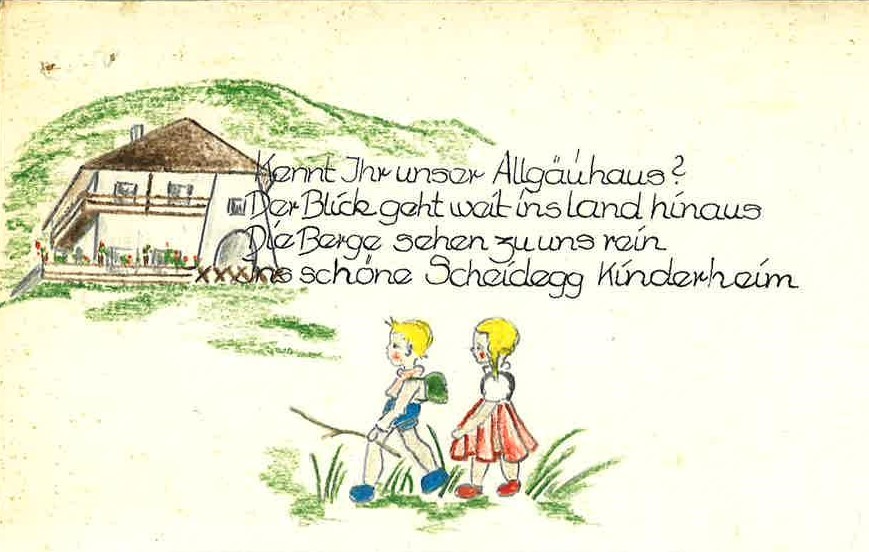 Kennt Ihr unser Allgäuhaus?
Der Blick geht weit ins Land hinaus
Die Berge sehen zu uns rein
ins schöne Scheidegg Kinderheim